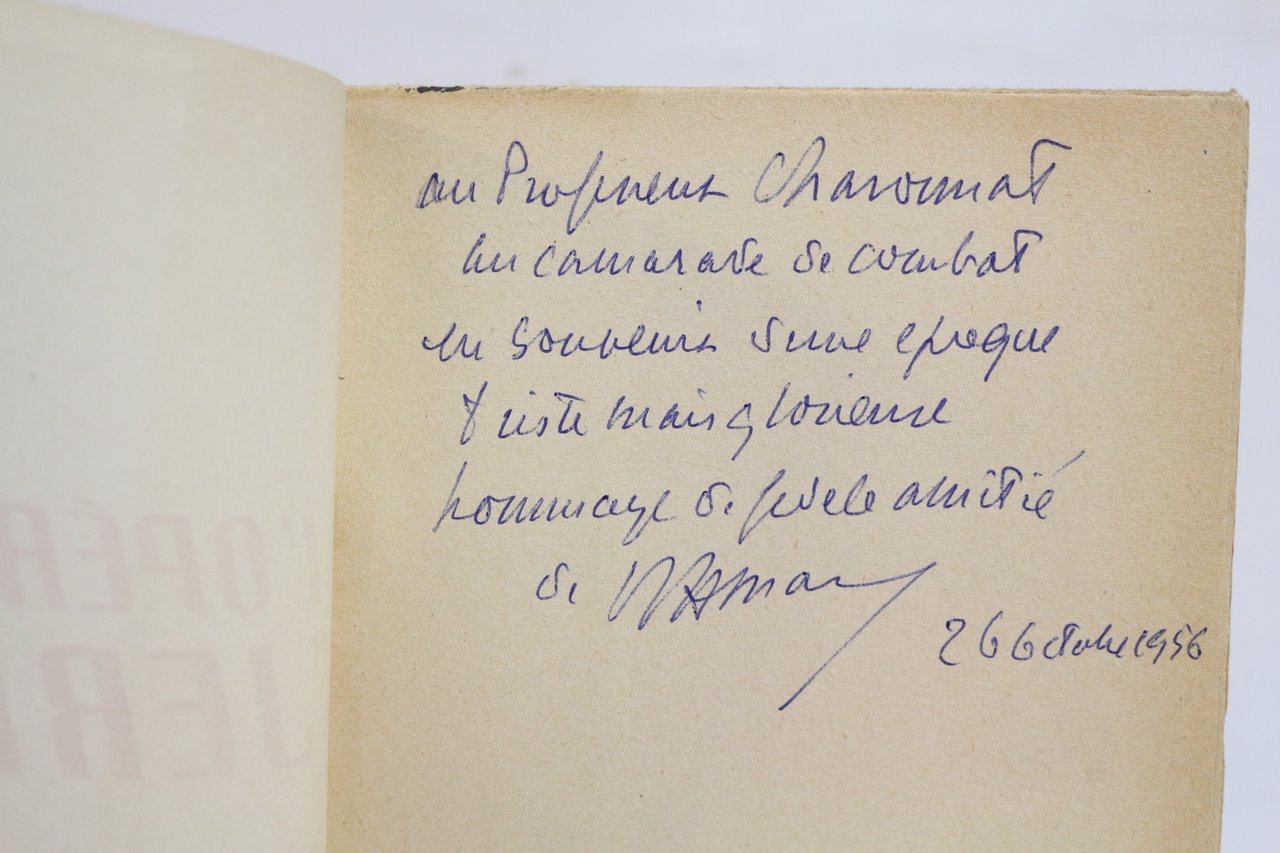 au Professeur Charonnat
un camarade de combat
en souvenir d'une epoque
triste mais glorieuse
hommage de fidele amitié
de
26 Octobre 1956